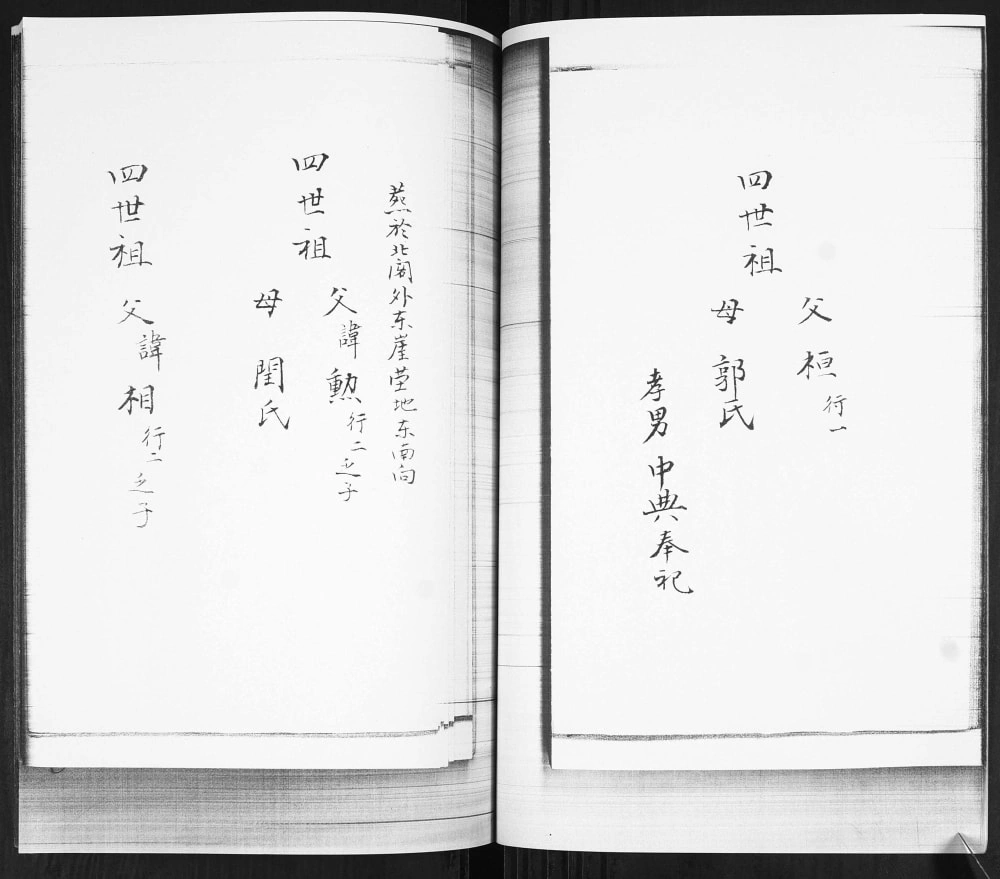 父 桓 行一
四世祖
母 郭氏
孝男 中典奉祀
葬於北阁外东崖茔地东南向
父諱 勲 行二之子
四世祖
母 閏氏
父諱 相 行二之子
四世祖